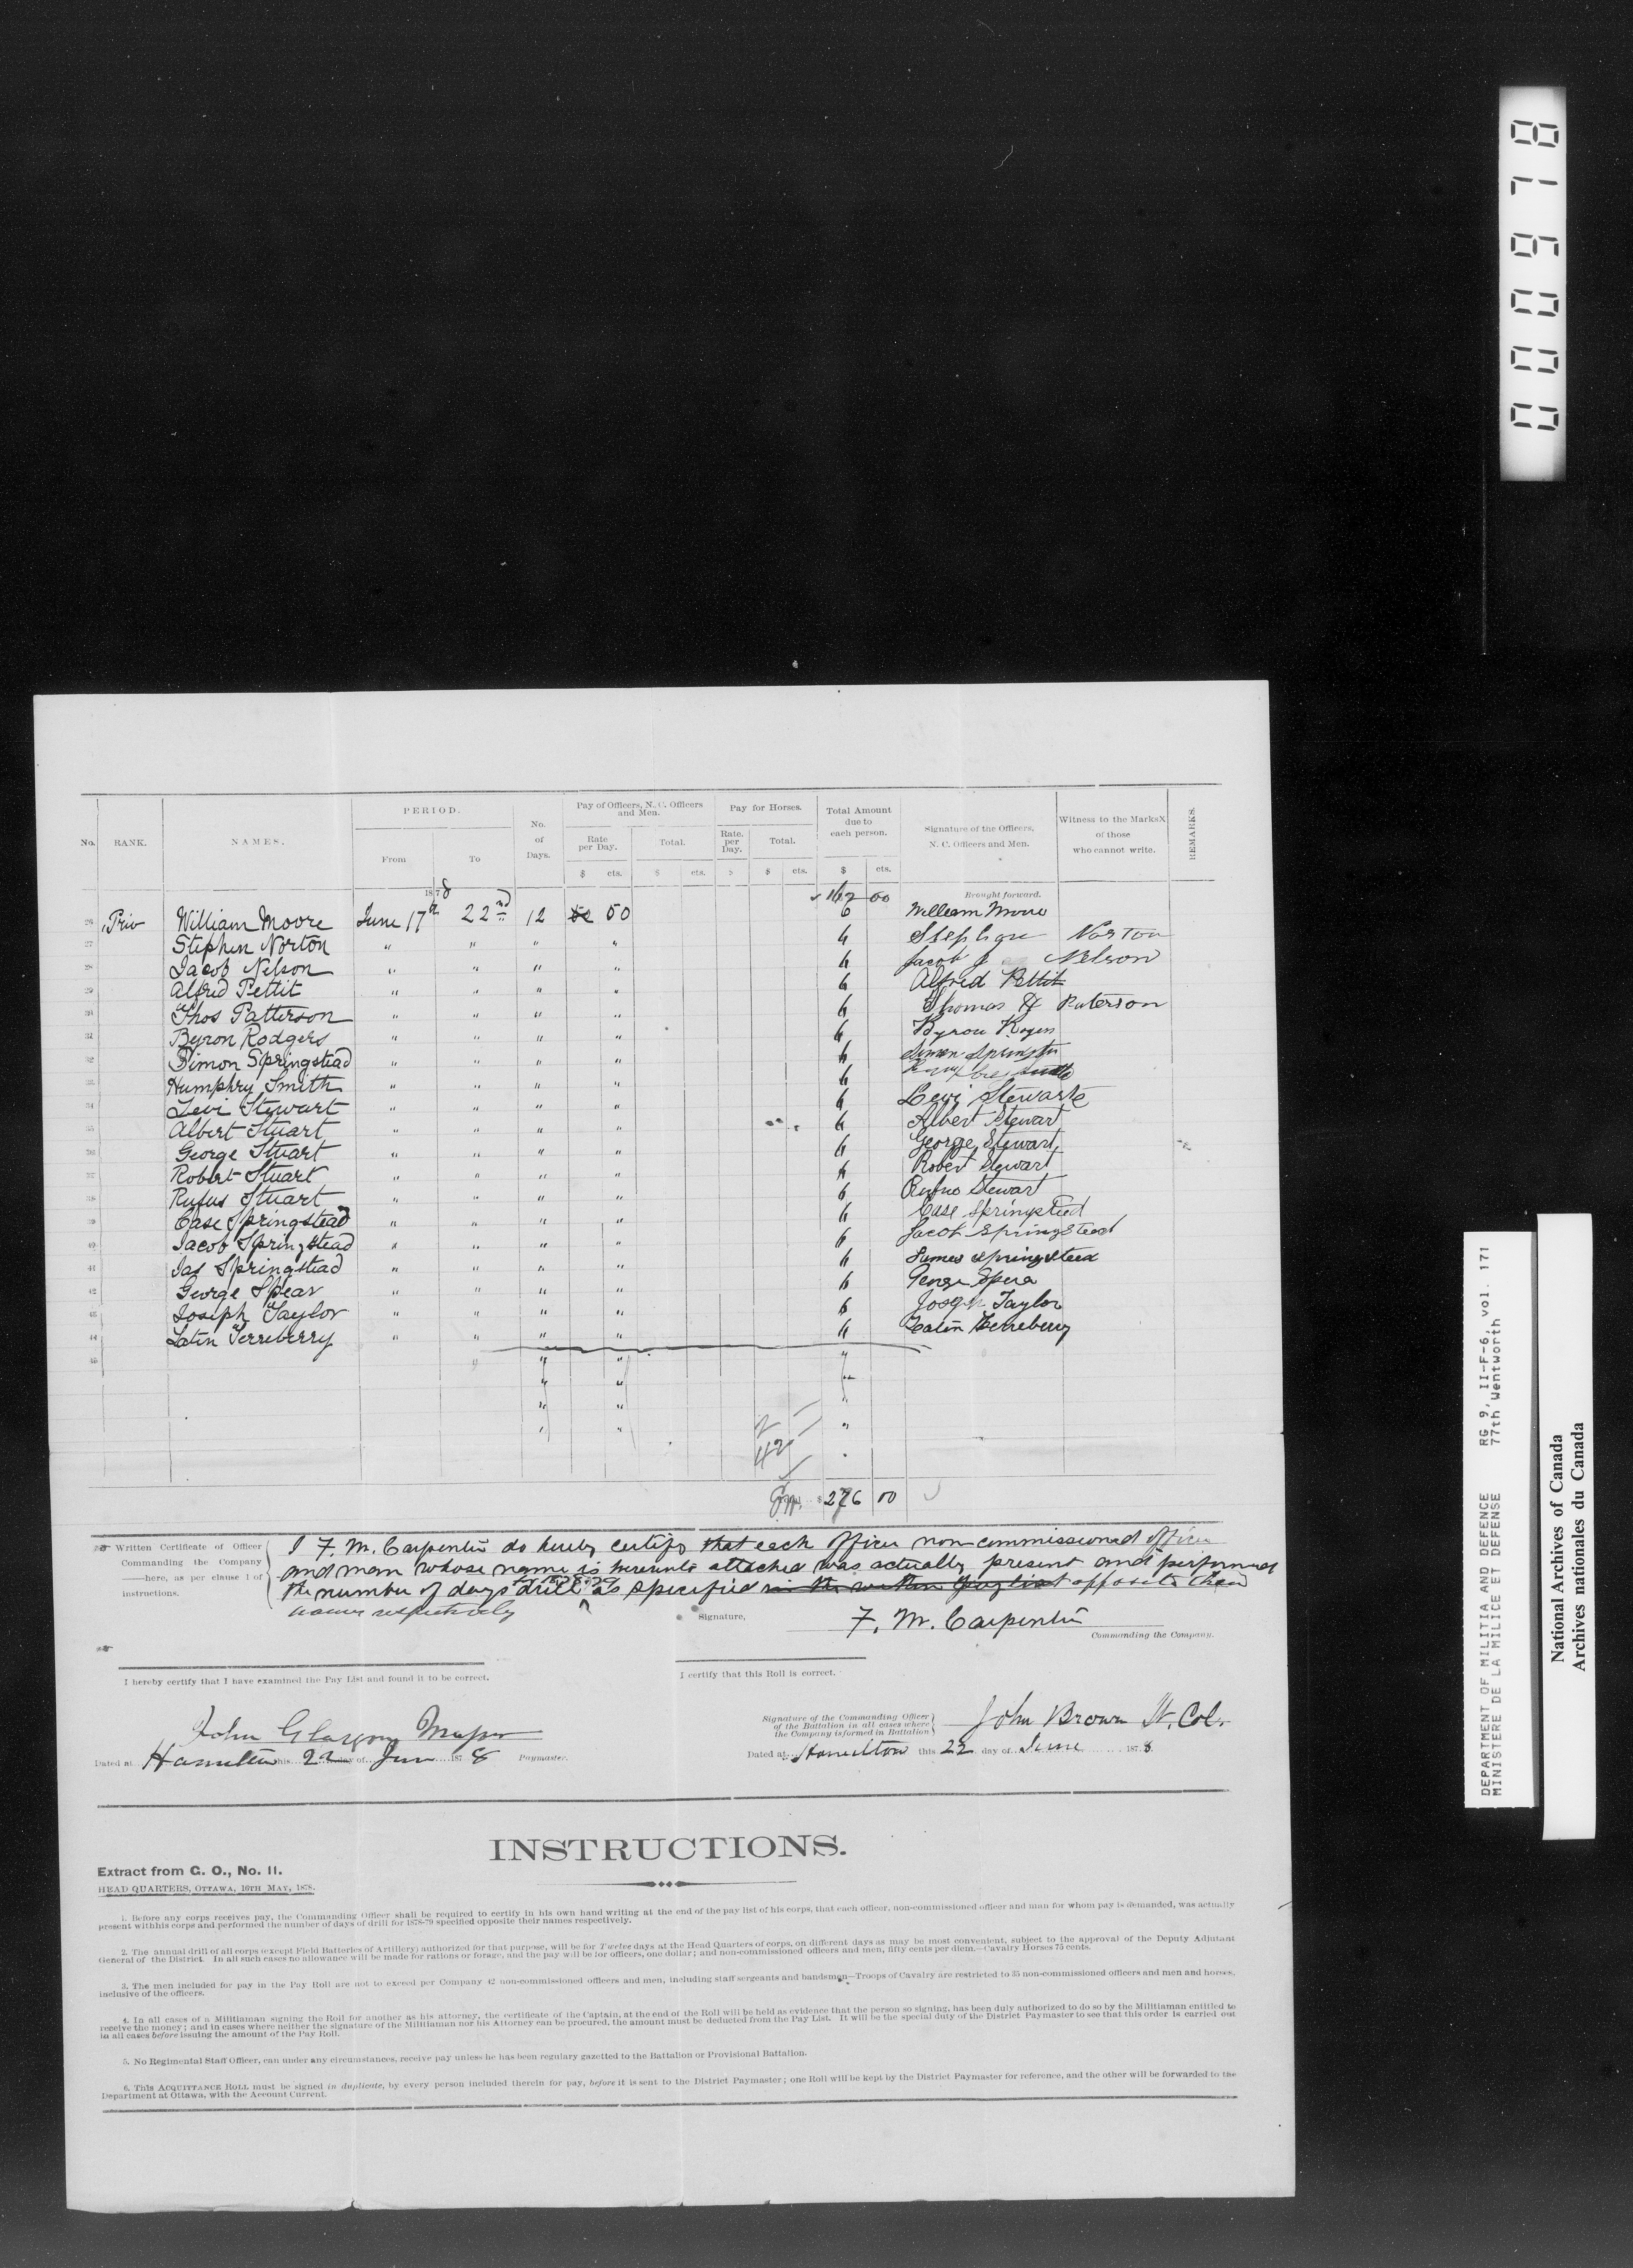 0000978
National Archives of Canada
Archives nationales du Canada
DEPARTMENT OF MILITIA AND DEFENCE RG 9, II-F-6, vol. 171
MINISTERE DE LA MILICE ET DEFENSE 77th Wentworth
No. RANK. NAMES. PERIOD. From To No. of Days. Pay of Officers, N. C. Officers and Men. Rate per Day. $ cts. Total. $ cts. Pay for Horses. Rate. per Day. $ Total. $ cts. Total Amount due to each person. $ cts. Signature of the Officers, N. C. Officers and Men. Witness to the Marks X of those who cannot write. REMARKS.
1878 162 00 Brought forward.
26 Priv William Moore June 17th 22nd 12 50 50 6 William Moore
27 Stephen Norton " " " " 6 Stephen Norton
28 Jacob Nelson " " " " 6 Jacob J Nelson
29 Alfred Pettit " " " " 6 Alfred Pettit
30 Thos Patterson " " " " 6 Thomas H Paterson
31 Byron Rodgers " " " " 6 Byron Rogers
32 Simon Springstead " " " " 6 Simon
33 Humphry Smith " " " " 6
34 Levi Stewart " " " " 6 Levi Stewarte
35 Albert Stuart " " " " 6 Albert Stewart
36 George Stuart " " " " 6 George Stewart
37 Robert Stuart " " " " 6 Robert Stewart
38 Rufus Stuart " " " " 6 Rufus Stewart
39 Case Springstead " " " " 6 Case Springsteed
40 Jacob Springstead " " " " 6 Jacob Springsteed
41 Jas Springstead " " " " 6 James Springsteed
42 George Spear " " " " 6 George Spera
43 Joseph Taylor " " " " 6 Joseph Taylor
44 Latin Terreberry " " " " 6 Terreberry
45 " " " "
" " "
" " "
" " "
42
$ 276 00
Written Certificate of Officer Commanding the Company ——here, as per clause 1 of instructions.
I F. M. Carpenter do hereby certify that each officer non-commissioned officer
and man whose name is hereunto attached was actually present and performed
the number of days drill for 1878-79 as specified in the within pay list opposite their
names respectively
Signature, F. M. Carpenter
Commanding the Company.
I hereby certify that I have examined the Pay List and found it to be correct.
I certify that this Roll is correct.
John Glasgow Major
Dated at Hamilton this 22 day of June 1878 Paymaster.
Signature of the Commanding Officer of the Battalion in all cases where the Company is formed in Battalion John Brown Lt. Col.
Dated at Hamilton this 22 day of June 1878.
INSTRUCTIONS.
Extract from G. O., No. 11.
HEAD QUARTERS, OTTAWA, 16TH MAY, 1878.
1. Before any corps receives pay, the Commanding Officer shall be required to certify in his own hand writing at the end of the pay list of his corps, that each officer, non-commissioned officer and man for whom pay is demanded, was actually
present with his corps and performed the number of days of drill for 1878-79 specified opposite their names respectively.
2. The annual drill of all corps (except Field Batteries of Artillery) authorized for that purpose, will be for Twelve days at the Head Quarters of corps, on different days as may be most convenient, subject to the approval of the Deputy Adjutant
General of the District. In all such cases no allowance will be made for rations or forage, and the pay will be for officers, one dollar; and non-commissioned officers and men, fifty cents per diem.—Cavalry Horses 75 cents.
3. The men included for pay in the Pay Roll are not to exceed per Company 42 non-commissioned officers and men, including staff sergeants and bandsmen—Troops of Cavalry are restricted to 35 non-commissioned officers and men and horses,
inclusive of the officers.
4. In all cases of a Militiaman signing the Roll for another as his attorney, the certificate of the Captain, at the end of the Roll will be held as evidence that the person so signing, has been duly authorized to do so by the Militiaman entitled to
receive the money; and in cases where neither the signature of the Militiaman nor his Attorney can be procured, the amount must be deducted from the Pay List. It will be the special duty of the District Paymaster to see that this order is carried out
in all cases before issuing the amount of the Pay Roll.
5. No Regimental Staff Officer, can under any circumstances, receive pay unless he has been regulary gazetted to the Battalion or Provisional Battalion.
6. This ACQUITTANCE ROLL must be signed in duplicate, by every person included therein for pay, before it is sent to the District Paymaster; one Roll will be kept by the District Paymaster for reference, and the other will be forwarded to the
Department at Ottawa, with the Account Current.